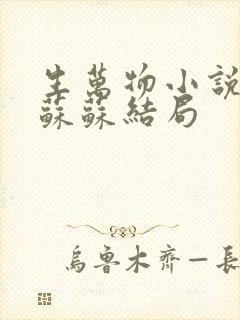 生萬物小說
蘇蘇結局
烏魯木齊—長